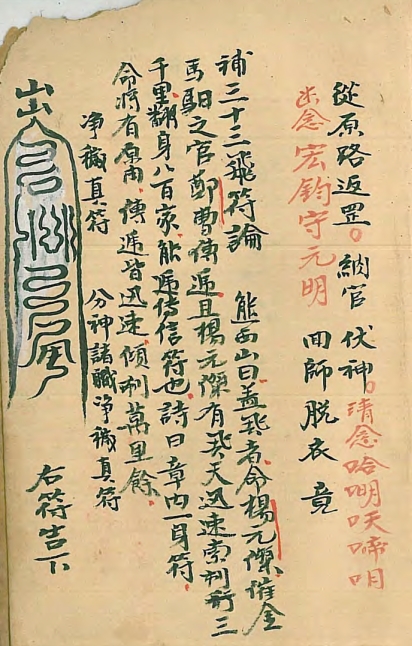 從原路返罡。納官 伏神。清念哈𠵇㕭啼呾
米念宏鈞守元明 回師脫衣 竟
補三十三飛符論 熊西山曰蓋飛者命楊元傑催金
馬馹之官鄭曹傳遞且楊元傑有飛天迅速索利行三
千里翻身八百家能遞傳信符也詩曰章內一身符
命將有傳遞皆迅速傾刻萬里餘
淨穢真符 分神諸職淨穢真符
右符告下